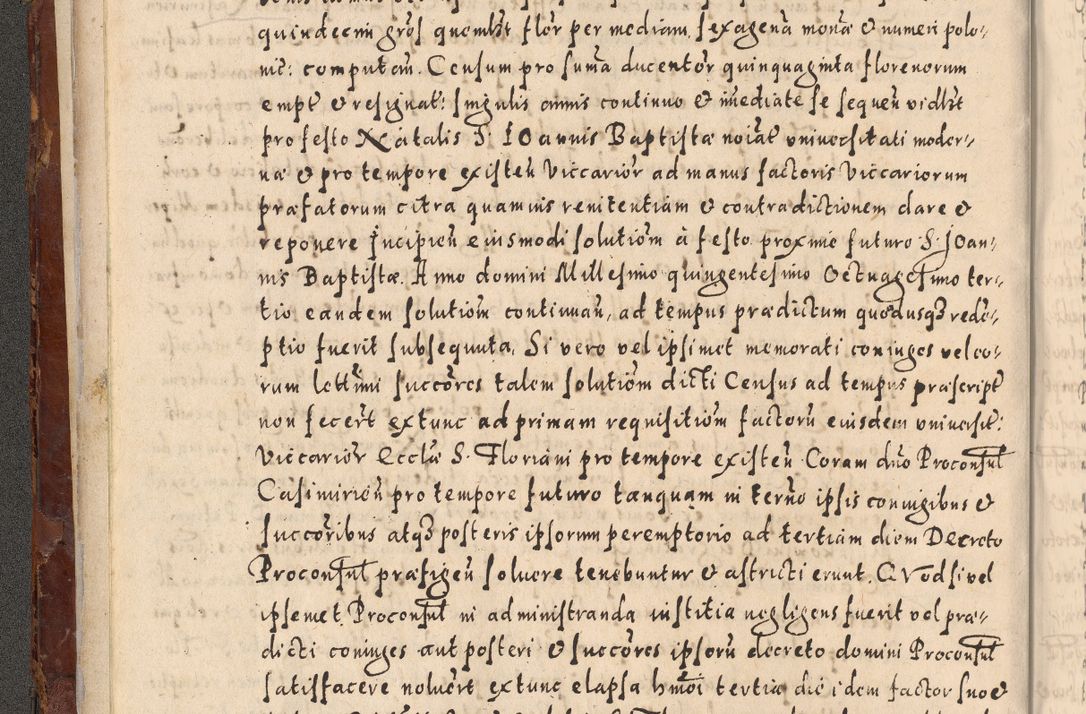 quindecim groſ quemlꝫt flor per mediam ſexagenā monā & numeri polo-
nic: computan̄. Cenſum pro ſuma ducentor̄ quinquaginta florenorum
empt̄ & reſignat: ſingulis annis continuo & im̄ediate ſe ſequen̄ vidlꝫt
pro feſto Natalis S: IOannis Baptiſtæ noiat̄ vniuerſitati moder-
næ & pro tempore exiſten̄ Viccarior̄ ad manus factoris Viccariorum
præfatorum citra quamuis renitentiam & contradictionem dare &
reponere Incipien̄ eiusmodi ſolutiōm à feſto proximè futuro S: JOan-
nis Baptiſtæ. Anno domini Milleſimo quingenteſimo Octuageſimo ter-
tio eandem ſolutiōm continuan̄, ad tempus prædictum quoduſqꝫ redē-
ptio fuerit ſubſequuta. Si vero vel ipſimet memorati coniuges vel eo-
rum lettīmi ſuccōres talem ſolutiōm dicti Cenſus ad tempus præſcript̄
non fecer̄t extunc ad primam requiſitiōm factorū eiusdem vniuerſit:
Viccarior̄ Eccl̄æ S. Floriani pro tempore exiſten̄ Coram dn̄o Proconſul̄
Caſimirien̄ pro tempore futuro tanquam in ter̄no ipſis coniugibus &
ſuccōribus atqꝫ poſteris ipſorum peremptorio ad tertiam diem Decreto
Proconſul̄ præfigen̄ ſoluere tenebuntur & aſtricti erunt. QVod ſi vel
ipſemet Proconſul̄ in adminiſtranda iuſtitia negligens fuerit vel præ-
dicti coniuges aut poſteri & ſuccōres ipſorū decreto domini Proconſul̄
ſatiſfacere noluer̄t extunc elapſa hm̄oi tertia die idem factor ſuo &